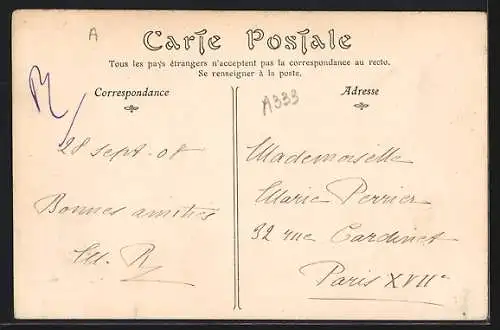 A
Carte Postale
Tous les pays étrangers n'acceptent pas la correspondance au recto.
Se renseigner à la poste.
Correspondance
Adresse
A333
28 sept - 08
Bonnes amitiés
R
Mademoiselle
Marie Perrier
92 rue Cardinet
Paris XVIIe